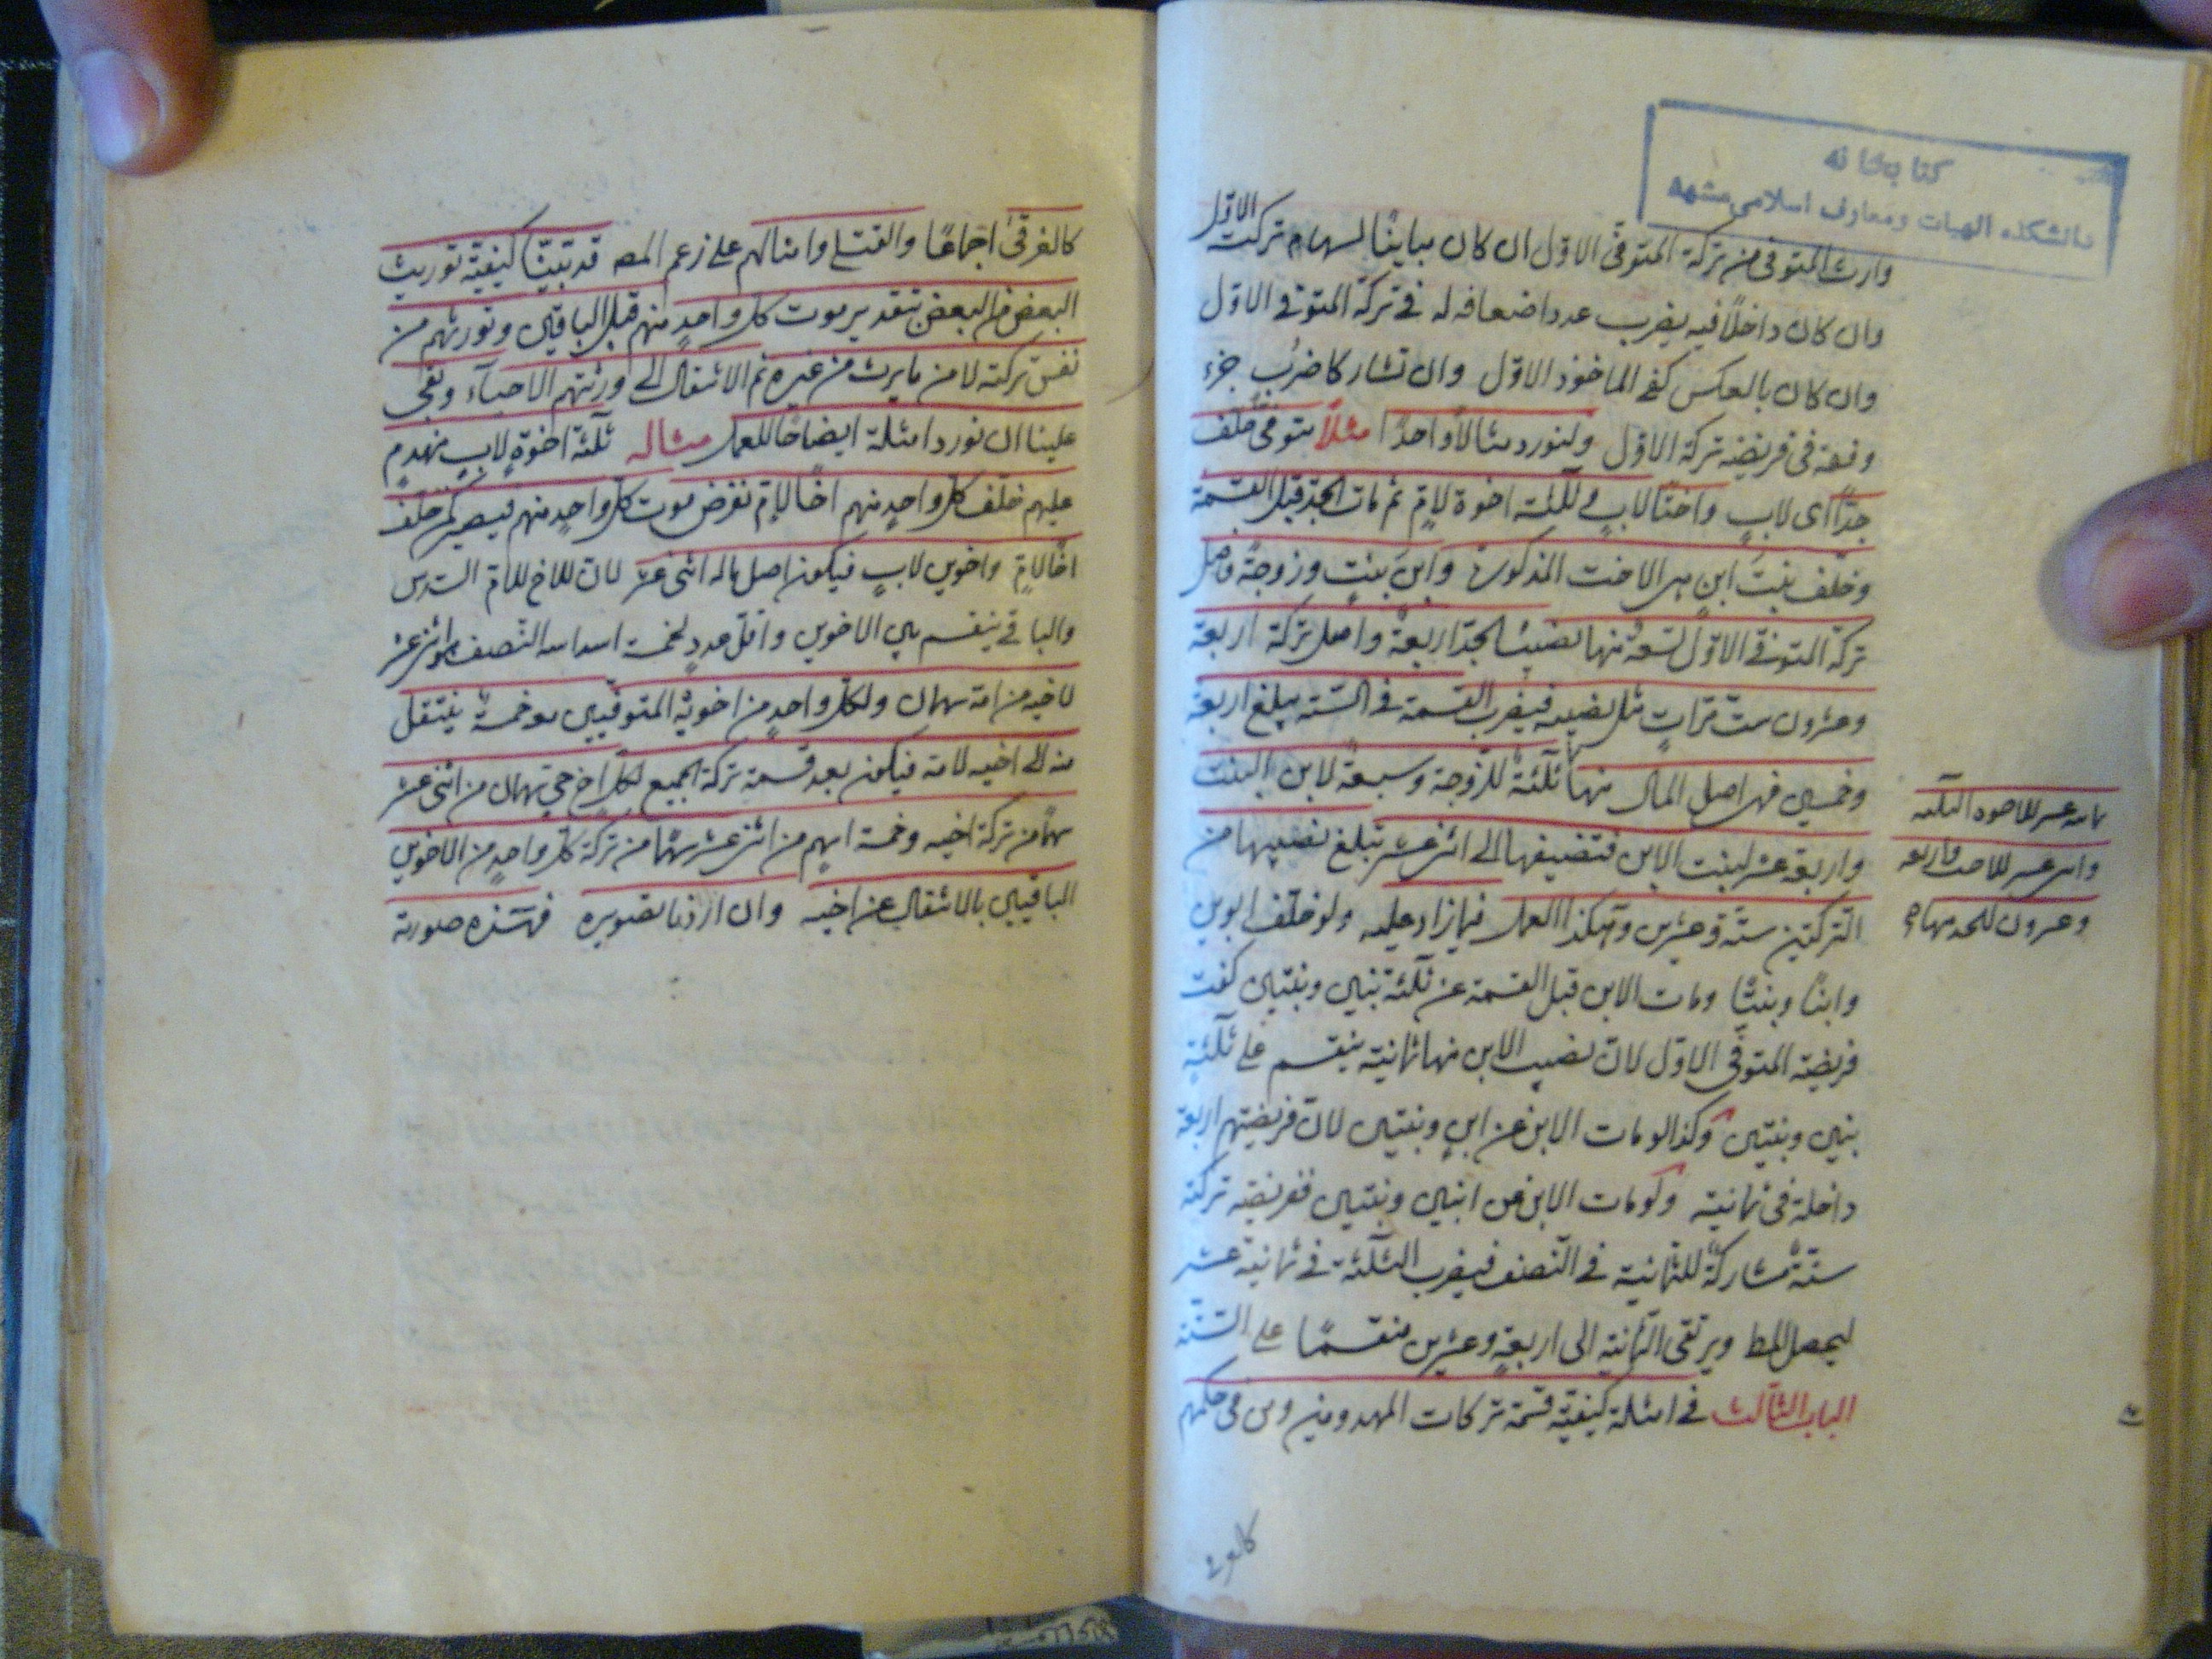 كتابخانه
دانشكده الهيات ومعارف اسلامى مشهد
الاول
وارث المتوفى من تركة المتوفى الاول ان كان مباينًا لسهام تركت
وان كان داخلاً فيه يضرب عدد اضعافه له فى تركة المتوفى الاول
وان كان بالعكس كفى الماخوذ الاول وان تشاركا ضرب جزء
وفقه فى فريضه تركة الاول ولنورد مثالاً واحدًا مثلاً متوفى خلف
جدًا اى لاب واختًا لاب وثلثة اخوة لامّ ثم مات الجد قبل القسمة
وخلف بنت ابن هى الاخت المذكورة وابن بنت وزوجة فاصل
تركة المتوفى الاول تسعة منها نصيب الجد اربعة واصل تركة اربعة
وعشرون ستّ مرّات مثل نصيبه فيضرب القسمة فى الستة يبلغ اربعة
وخمسين فهى اصل المال منها ثلثة للزوجة وسبعة لابن البنت
واربعة عشر لبنت الابن فتضيفها الى اثنى عشر تبلغ نصيبها من
التركتين ستة وعشرين وهكذا العمل فيما زاد عليه ولو خلف ابوين
وابنًا وبنتًا ومات الابن قبل القسمة عن ثلثة بنين وبنتين كفت
فريضة المتوفى الاول لان نصيب الابن منها ثمانية ينقسم على ثلثة
بنين وبنتين وكذا لو مات الابن عن ابن وبنتين لان فريضتهم اربعة
داخلة فى ثمانية ولو مات الابن عن ابنين وبنتين ففريضة تركته
ستة مشاركة للثمانية فى النصف فيضرب الثلثة فى ثمانية عشر
ليحصل المط ويرتقى الثمانية الى اربعة وعشرين منقسمًا على الستة
الباب الثالث فى امثلة كيفية قسمة تركات المهدومين ومن فى حكمهم
ثمانية عشر للاخوة الثلثة
واثنى عشر للاخت واربعة
وعشرون للجد منها
كالغرقى
كالغرقى اجماعًا والقتلى وامثالهم على زعم المصه قد تبيّنا كيفية توريث
البعض من البعض بتقدير موت كل واحد منهم قبل الباقين وتورثهم من
نفس تركته لا من ما يرث من غيره ثم الانتقال الى ورثتهم الاحياء وبقى
علينا ان نورد امثلة ايضاحًا للعمل مثاله ثلثة اخوة لاب ينهدم
عليهم خلف كل واحد منهم اخًا لام نفرض موت كل واحد منهم فيصير كمن خلف
اخًا لام واخوين لاب فيكون اصل ماله اثنى عشر لان للاخ للام السدس
والباقى ينقسم بين الاخوين واقل عدد لخمسة اسداسه النصف هو اثنى عشر
لاخيه من امه سهمان ولكل واحد من اخويه المتوفيين معه خمسة ينتقل
منه الى اخيه لامه فيكون بعد قسمة تركة الجميع لكل اخ حى سهمان من اثنى عشر
سهمًا من تركة اخيه وخمسة اسهم من اثنى عشر سهمًا من تركة كل واحد من الاخوين
الباقيين بالانتقال عن اخيه وان اردنا تصويره فهذه صورته